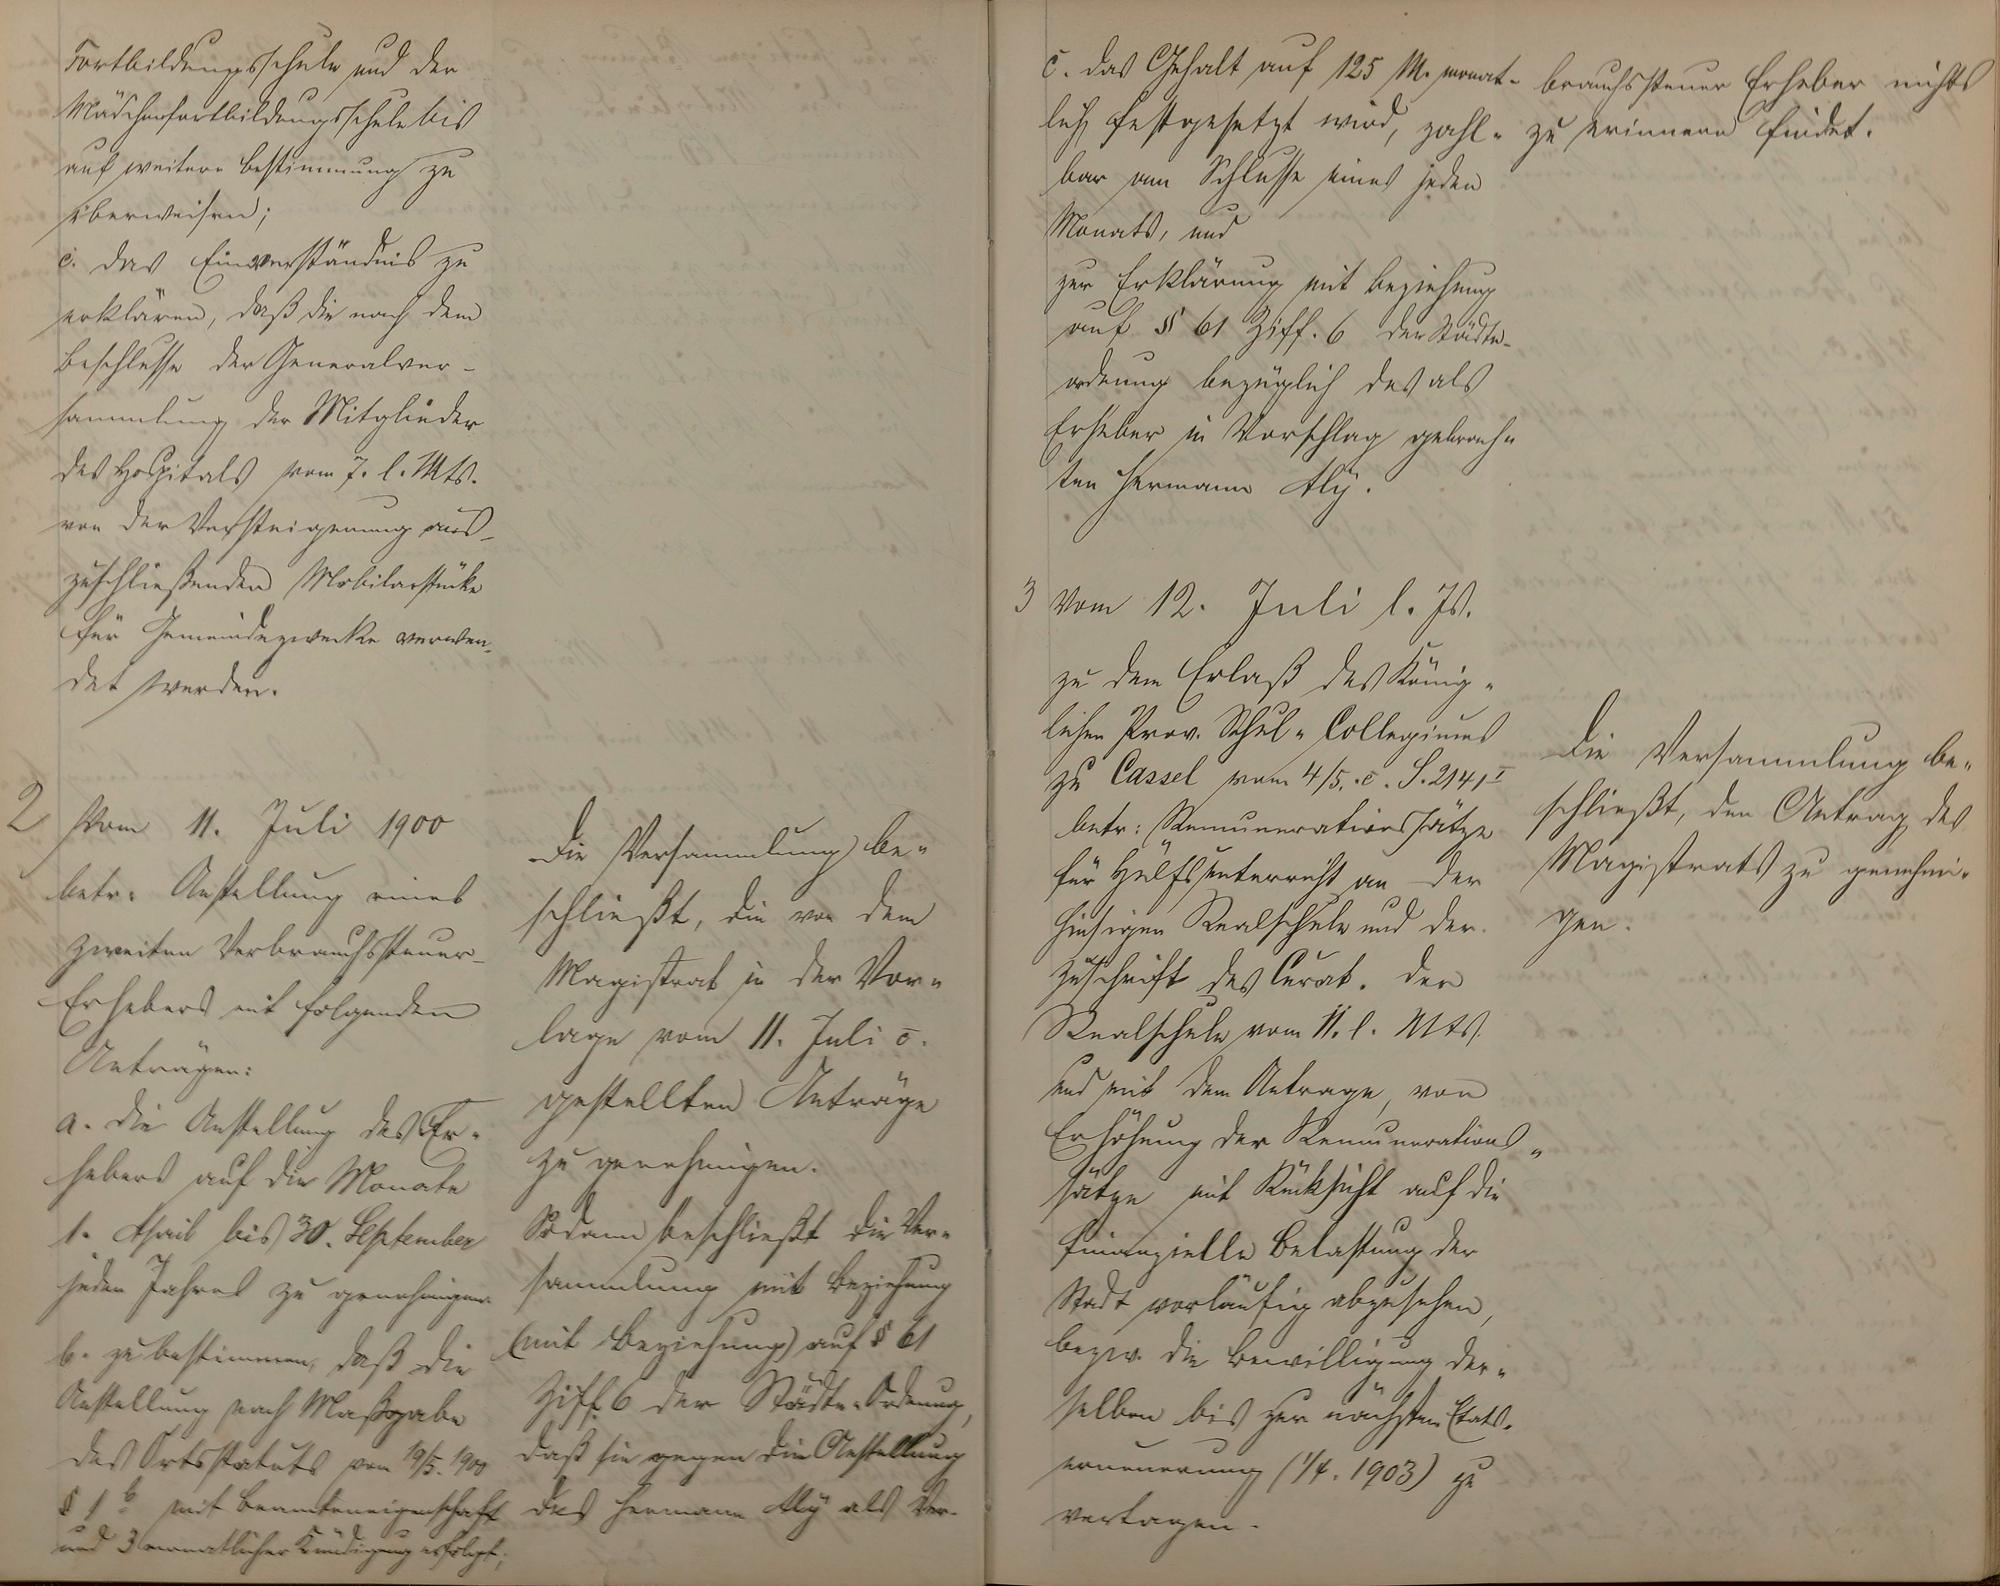 Fortbildungsschule und der
Mädchenfortbildungsschule bis
auf weitere Bestimmung zu
überweisen;
c. das Einverständnis zu
erklären, daß die nach dem
Beschlusse der Generalver-
sammlung der Mitglieder
des Hospitals vom 7. l. Mts.
von der Versteigerung aus-
zuschließenden Mobilarstücke
für Gemeindezwecke verwen-
det werden.
2 Vom 11. Juli 1900
betr. Anstellung eines
zweiten Verbrauchssteuer-
Erhebers mit folgenden
Anträgen:
a. die Anstellung des Er-
hebers auf die Monate
1. April bis 30. September
jeden Jahres zu genehmigen
b. zu bestimmen, daß die
Anstellung nach Maßgabe
des Ortsstatuts vom 19/5. 1900
§ 1 b mit Beamteneigenschaft
und 3 monatlicher Kündigung erfolgt;
Die Versammlung be-
schließt, die von dem
Magistrat in der Vor-
lage vom 11. Juli c.
gestellten Anträge
zu genehmigen.
Sodann beschließt die Ver-
sammlung mit Beziehung
(mit Beziehung) auf § 61
Ziff. 6 der Städte-Ordnung,
daß sie gegen die Anstellung
des Hermann Aly als Ver-
c. das Gehalt auf 125 M. monat-
lich festgesetzt wird, zahl-
bar am Schlusse eines jeden
Monats, und
zur Erklärung mit Beziehung
auf § 61 Ziff. 6 der Städte-
ordnung bezüglich des als
Erheber in Vorschlag gebrach-
ten Hermann Aly.
3 Vom 12. Juli l. Js.
zu dem Erlaß des König-
lichen Prov. Schul-Collegiums
zu Cassel vom 4/5. c. S. 2141 I
betr: Remunerationssätze
für Hülfsunterricht an der
hiesigen Realschule und der
Zuschrift des Curat. der
Realschule vom 11. l. Mts.
und mit dem Antrage, von
Erhöhung der Remunerations-
sätze mit Rücksicht auf die
finanzielle Belastung der
Stadt vorläufig abzusehen,
bezw. die Bewilligung der-
selben bis zur nächsten Etats-
erneuerung (1/4. 1903) zu
vertagen.
brauchssteuer Erheber nichts
zu erinnern findet.
Die Versammlung be-
schließt, den Antrag des
Magistrats zu genehmi-
gen.